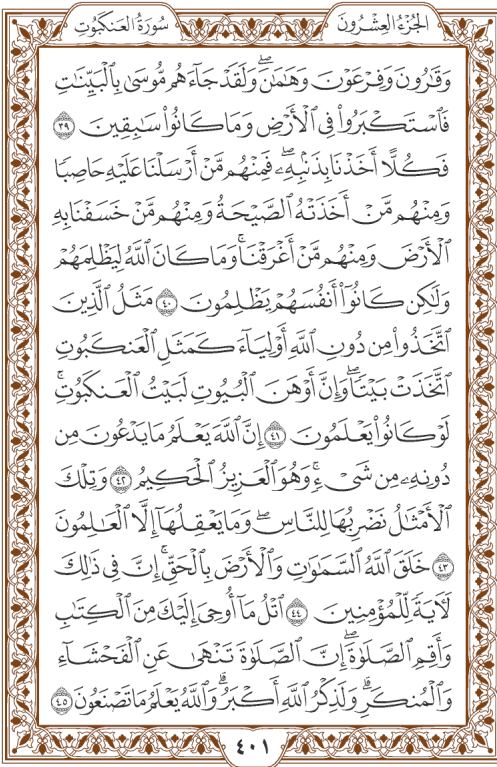 الجُزْءُ العِشْرُونَ
سُورَةُ العَنكَبُوتِ
وَقَٰرُونَ وَفِرْعَوْنَ وَهَٰمَٰنَۖ وَلَقَدْ جَآءَهُم مُّوسَىٰ بِٱلْبَيِّنَٰتِ
فَٱسْتَكْبَرُوا۟ فِى ٱلْأَرْضِ وَمَا كَانُوا۟ سَٰبِقِينَ ٣٩
فَكُلًّا أَخَذْنَا بِذَنۢبِهِۦۖ فَمِنْهُم مَّنْ أَرْسَلْنَا عَلَيْهِ حَاصِبًا
وَمِنْهُم مَّنْ أَخَذَتْهُ ٱلصَّيْحَةُ وَمِنْهُم مَّنْ خَسَفْنَا بِهِ
ٱلْأَرْضَ وَمِنْهُم مَّنْ أَغْرَقْنَاۚ وَمَا كَانَ ٱللَّهُ لِيَظْلِمَهُمْ
وَلَٰكِن كَانُوٓا۟ أَنفُسَهُمْ يَظْلِمُونَ ٤٠ مَثَلُ ٱلَّذِينَ
ٱتَّخَذُوا۟ مِن دُونِ ٱللَّهِ أَوْلِيَآءَ كَمَثَلِ ٱلْعَنكَبُوتِ
ٱتَّخَذَتْ بَيْتًاۖ وَإِنَّ أَوْهَنَ ٱلْبُيُوتِ لَبَيْتُ ٱلْعَنكَبُوتِۚ
لَوْ كَانُوا۟ يَعْلَمُونَ ٤١ إِنَّ ٱللَّهَ يَعْلَمُ مَا يَدْعُونَ مِن
دُونِهِۦ مِن شَىْءٍۚ وَهُوَ ٱلْعَزِيزُ ٱلْحَكِيمُ ٤٢ وَتِلْكَ
ٱلْأَمْثَٰلُ نَضْرِبُهَا لِلنَّاسِۖ وَمَا يَعْقِلُهَآ إِلَّا ٱلْعَٰلِمُونَ
٤٣ خَلَقَ ٱللَّهُ ٱلسَّمَٰوَٰتِ وَٱلْأَرْضَ بِٱلْحَقِّۚ إِنَّ فِى ذَٰلِكَ
لَءَايَةً لِّلْمُؤْمِنِينَ ٤٤ ٱتْلُ مَآ أُوحِىَ إِلَيْكَ مِنَ ٱلْكِتَٰبِ
وَأَقِمِ ٱلصَّلَوٰةَۖ إِنَّ ٱلصَّلَوٰةَ تَنْهَىٰ عَنِ ٱلْفَحْشَآءِ
وَٱلْمُنكَرِۗ وَلَذِكْرُ ٱللَّهِ أَكْبَرُۗ وَٱللَّهُ يَعْلَمُ مَا تَصْنَعُونَ ٤٥
٤٠١